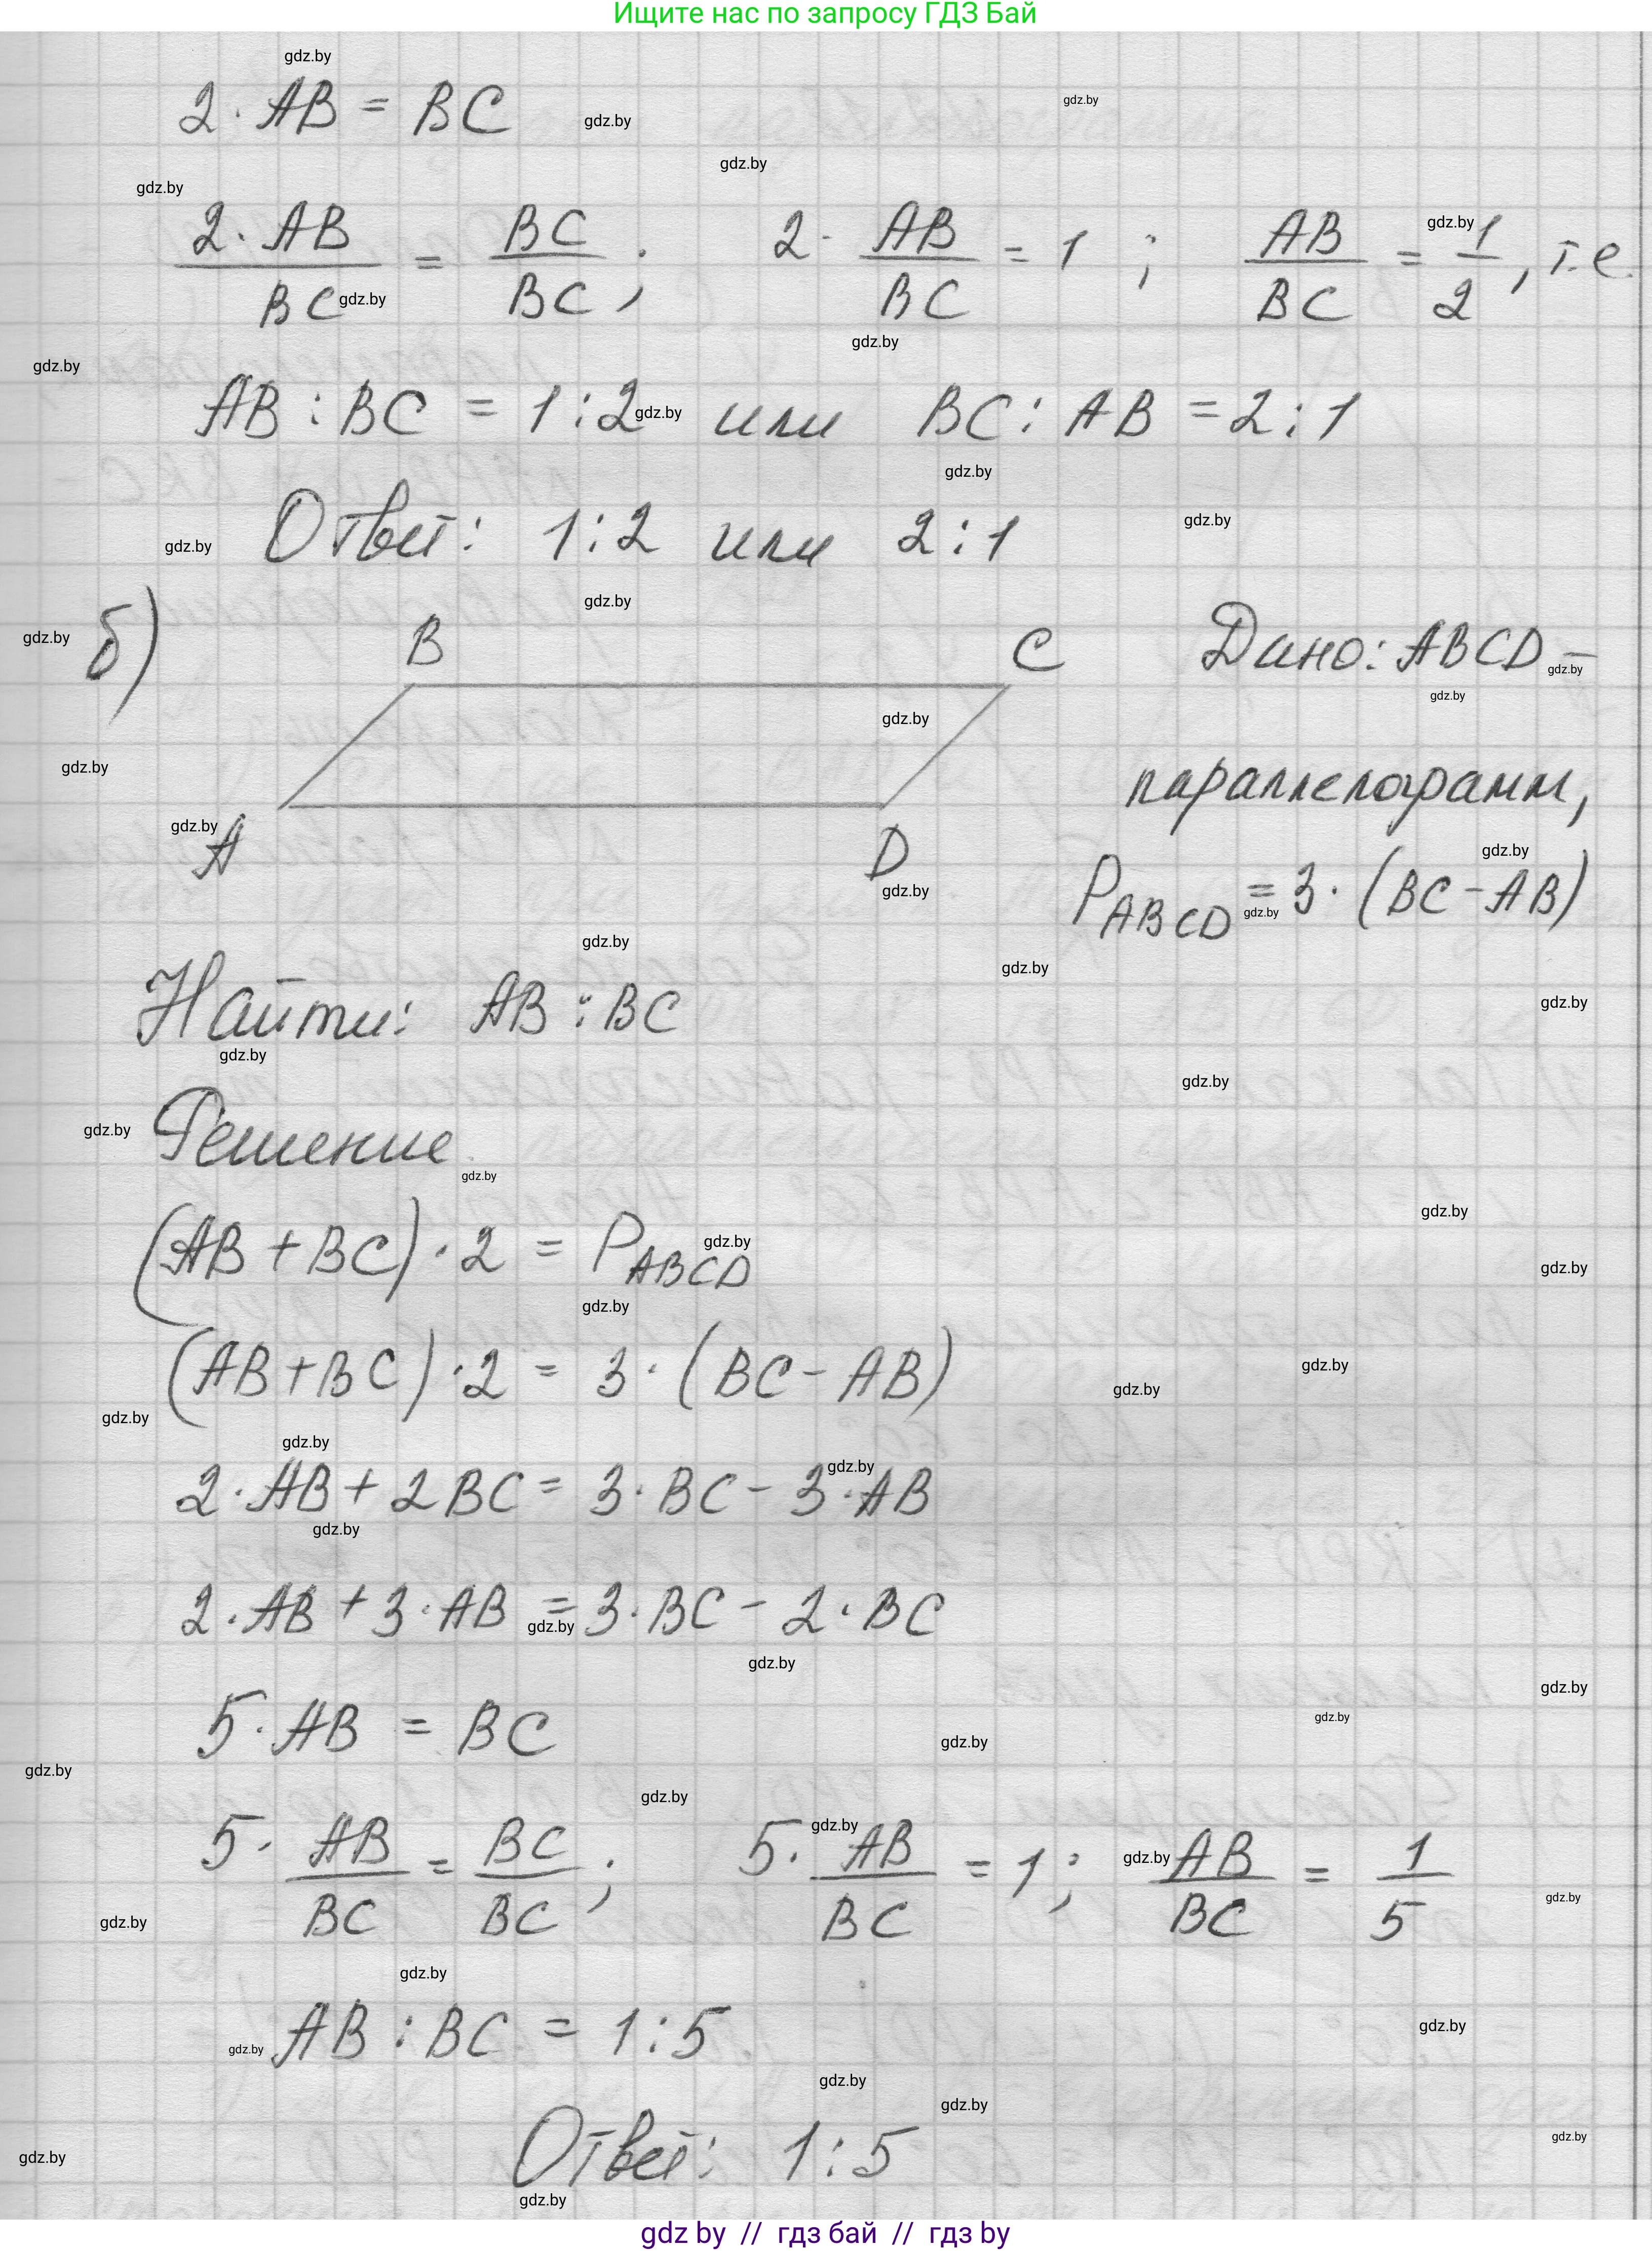 Ищите нас по запросу ГДЗ Бай
2 · AB = BC
2 · AB / BC = BC / BC ; 2 · AB / BC = 1 ; AB / BC = 1 / 2 , т.е.
AB : BC = 1 : 2 или BC : AB = 2 : 1
Ответ: 1 : 2 или 2 : 1
б) B C Дано: ABCD –
параллелограмм,
A D
P ABCD = 3 · (BC - AB)
Найти: AB : BC
Решение
(AB + BC) · 2 = P ABCD
(AB + BC) · 2 = 3 · (BC - AB)
2 · AB + 2 BC = 3 · BC - 3 · AB
2 · AB + 3 · AB = 3 · BC - 2 · BC
5 · AB = BC
5 · AB / BC = BC / BC ; 5 · AB / BC = 1 ; AB / BC = 1 / 5
AB : BC = 1 : 5
Ответ: 1 : 5
gdz by // гдз бай // гдз by